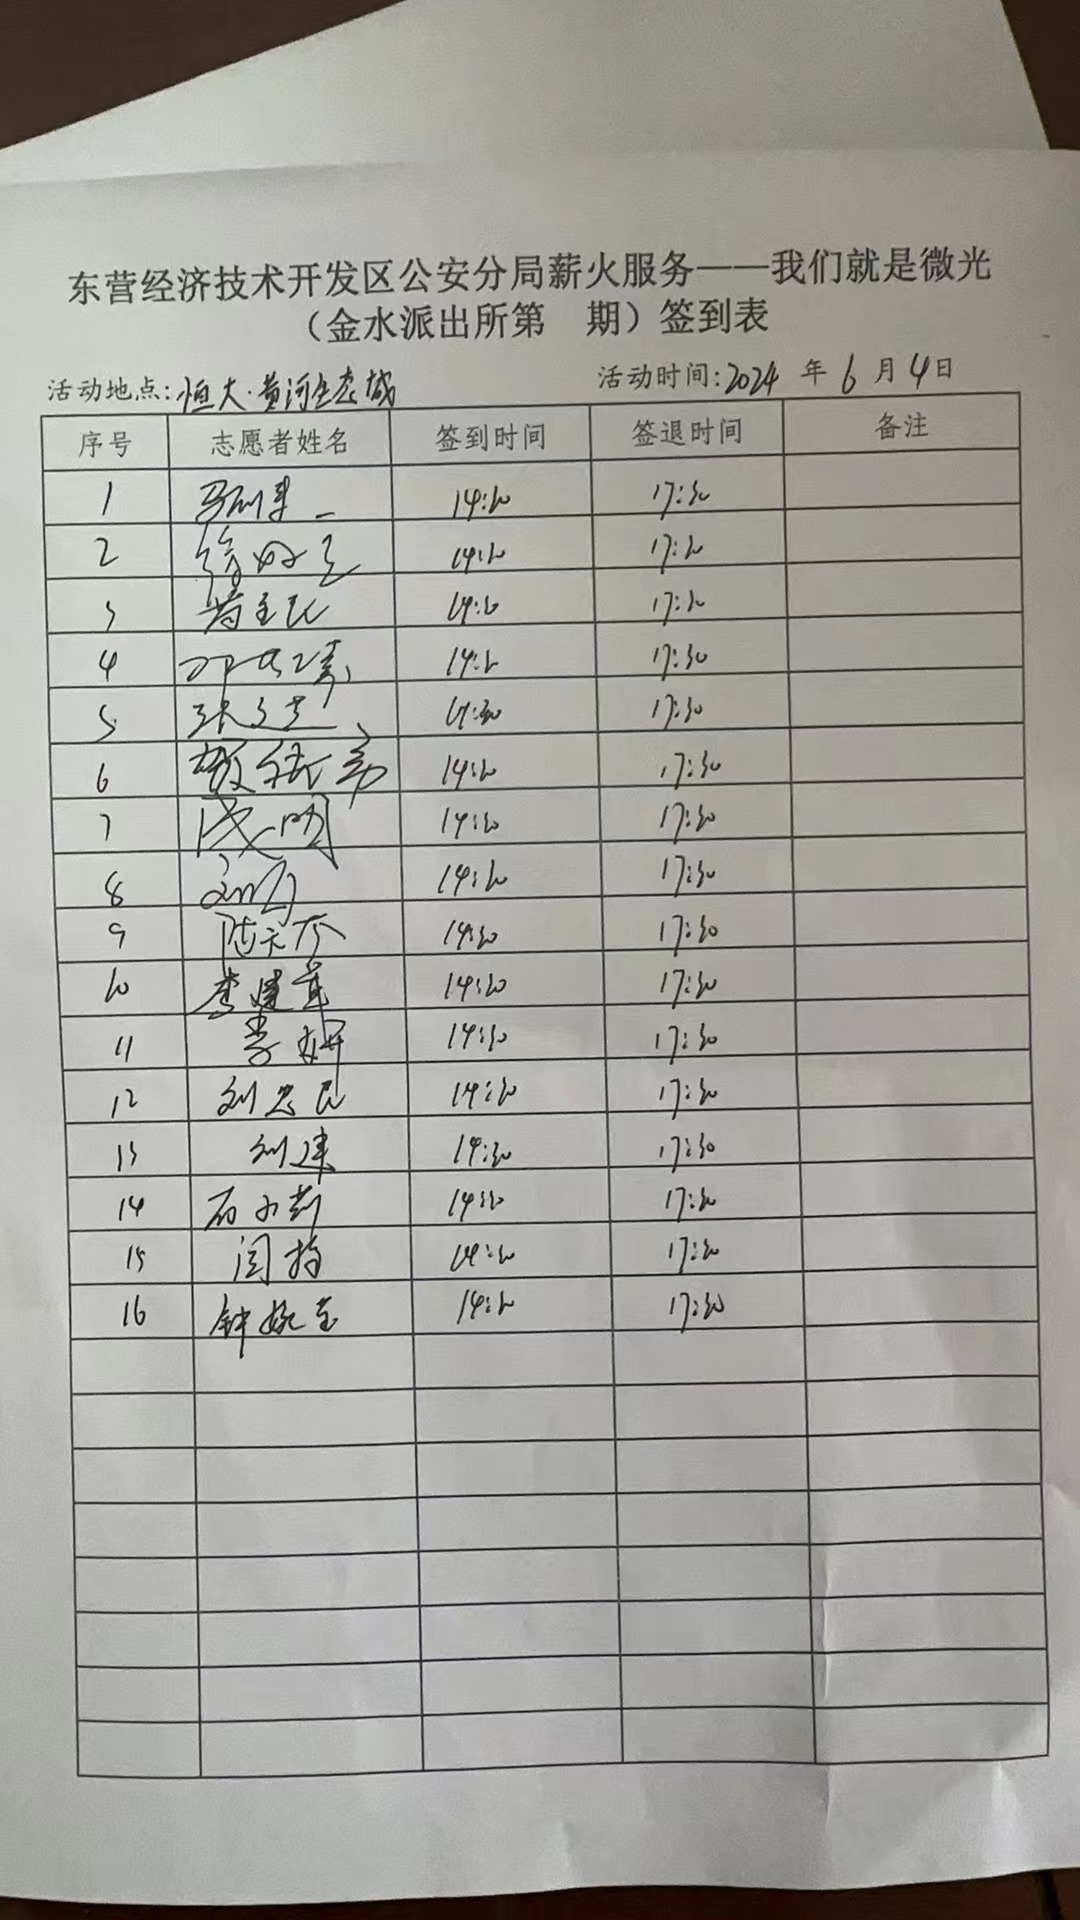 东营经济技术开发区公安分局薪火服务——我们就是微光
（金水派出所第 期）签到表
活动地点:恒大·黄河生态城 活动时间:2024 年 6 月 4 日
序号 志愿者姓名 签到时间 签退时间 备注
1 14:30 17:30
2 14:30 17:30
3 14:30 17:30
4 14:30 17:30
5 14:30 17:30
6 14:30 17:30
7 14:30 17:30
8 14:30 17:30
9 14:30 17:30
10 李建 14:30 17:30
11 李妍 14:30 17:30
12 刘忠民 14:30 17:30
13 刘建 14:30 17:30
14 石小莉 14:30 17:30
15 闫 14:30 17:30
16 钟婉 14:30 17:30